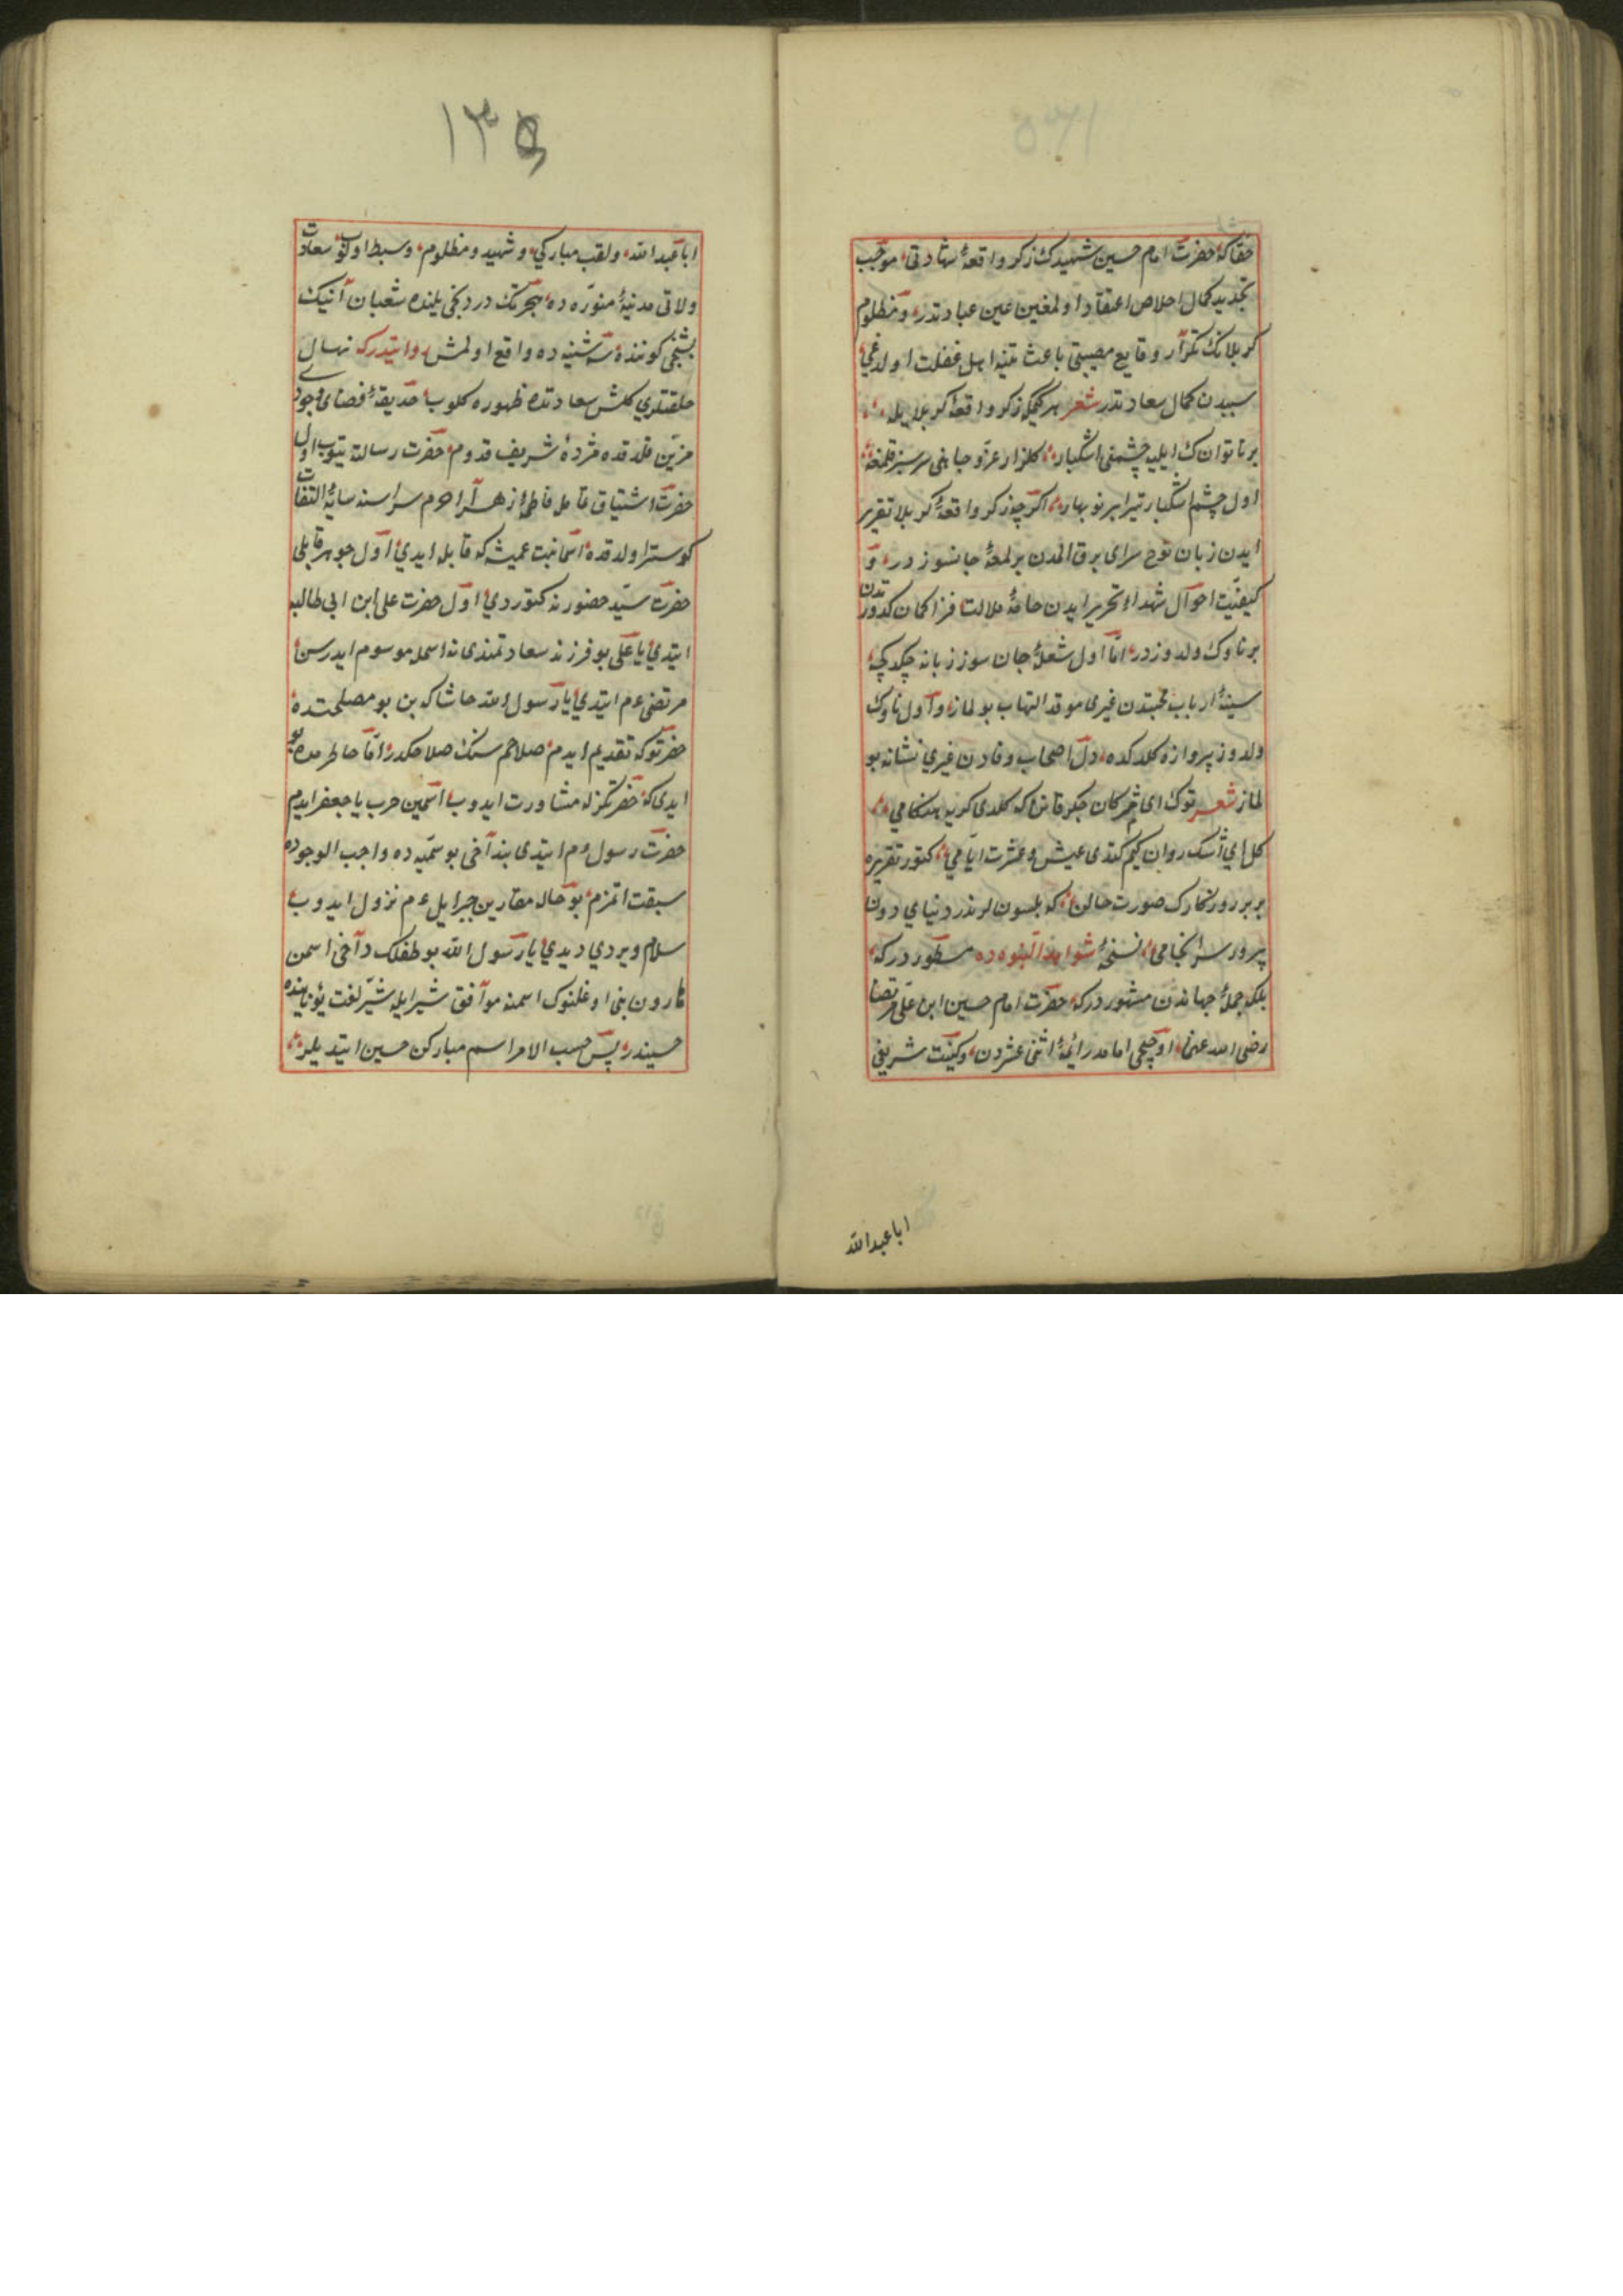 حقاکه حضرت امام حسین شهیدك ذکر واقعۀ شهادتی موجب
تجدید کمال اخلاص اعتقاد اولمغین عین عبادتدر ومظلوم
کربلانك تکرار وقایع مصیبتی باعث تنبیه اهل غفلت اولدغی
سبیدن کمال سعادتدر شعر هر کیمکه ذکر واقعۀ کربلا یله
بر ناتوانك ایلیه چشمنی اشکبار کلزار عز و جاهنی سرسبز قلمغه
اول چشم اشکبار یتر ابر نوبهار اکرچه ذکر واقعۀ کربلا تقریر
ایدن زبان نوح سرای برق المدن بر لمعۀ جانسوزدر و
کیفیت احوال شهداء تحریر ایدن خامۀ ملالت فزا کمان کدورتدن
بر ناوك دلدوزدر اما اول شعلۀ جان سوز زبانه چکدکچه
سینۀ ارباب محبتدن غیری موقد التهاب بولماز و اول ناوك
دلدوز پروازه کلدکده دل اصحاب وفادن غیری نشانه بو
لماز شعر توك ای مژکان جکر قانن که کلدی کریه هنکامی
کل ای اشك روان کیم کتدی عیش و عشرت ایامی کتور تقریره
بر بر روزکارك صورت حالن که بلسونلر ندر دنیای دون
پرور سرانجامی نسخۀ شواهد النبوه ده مسطوردرکه
بلکه جملۀ جهاندن مشهوردرکه حضرت امام حسین ابن علی مرتضا
رضی الله عنه اوچنجی امامدر ائمۀ اثنی عشردن وکنیت شریفی
ابا عبدالله
۱۳۵
ابا عبدالله ولقب مبارکی وشهید ومظلوم وسبط اولوب سعادت
ولاتی مدنیۀ منوره ده هجرتك دردنجی یلنده شعبان آنیك
بشنجی کوننده سه شنبه ده واقع اولمش روایتدرکه نهال
خلقتلری کلشن سعادتده ظهوره کلوب حدیقۀ فضای وجودی
مزین قلدقده مژدۀ شریف قدوم حضرت رسالته یتوب اول
حضرت اشتیاق تامله فاطمۀ زهرا حرم سراسنه سایۀ التفات
کوستراولدقده اسما بنت عمیش که قابله ایدی اول جوهر قابلی
حضرت سید حضورنه کتوردی اول حضرت علی ابن ابی طالبه
ایتدی یا علی بو فرزند سعادتمندی نه اسمله موسوم ایدرسن
مرتضی عم ایتدی یا رسول الله حاشاکه بن بو مصلحتده
حضرتوکه تقدیم ایدم صلاحم سنك صلاحکدر اما خاطرمده بو
ایدی که حضرتکزله مشاورت ایدوب اسمین حرب یا جعفر ایدم
حضرت رسول عم ایتدی بن دآخی بو سمیه ده واجب الوجوده
سبقت اتمزم بو حاله مقارن جبرایل عم نزول ایدوب
سلام ویردی دیدی یا رسول الله بو طفلك دآخی اسمن
هارون بنی اوغلنوك اسمنه موآفق شبر ایله شبیر لغت یونانیده
حسیندر پس حسب الامر اسم مبارکن حسین ایتدیلر